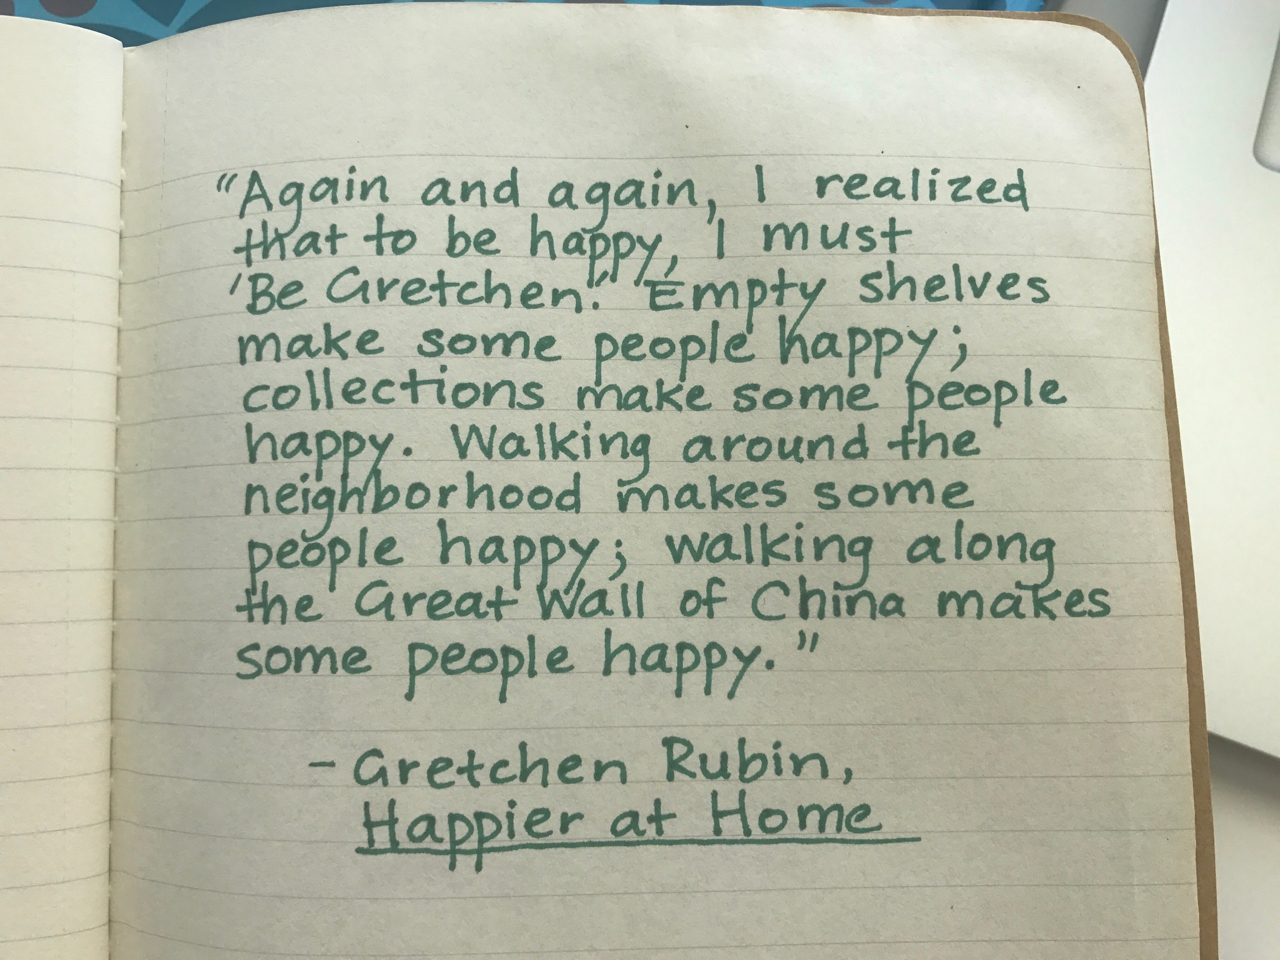 “Again and again, I realized
that to be happy, I must
'Be Gretchen.' Empty shelves
make some people happy;
collections make some people
happy. Walking around the
neighborhood makes some
people happy; walking along
the Great Wall of China makes
some people happy.”
- Gretchen Rubin,
Happier at Home